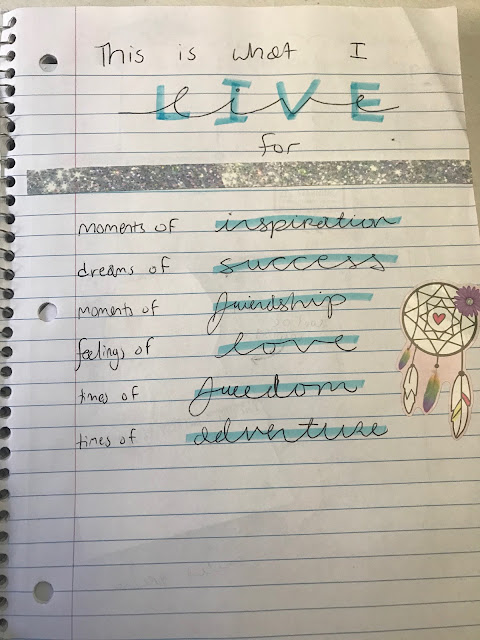 This is what I
LIVE
live
for
moments of inspiration
dreams of success
moments of friendship
feelings of love
times of freedom
times of adventure